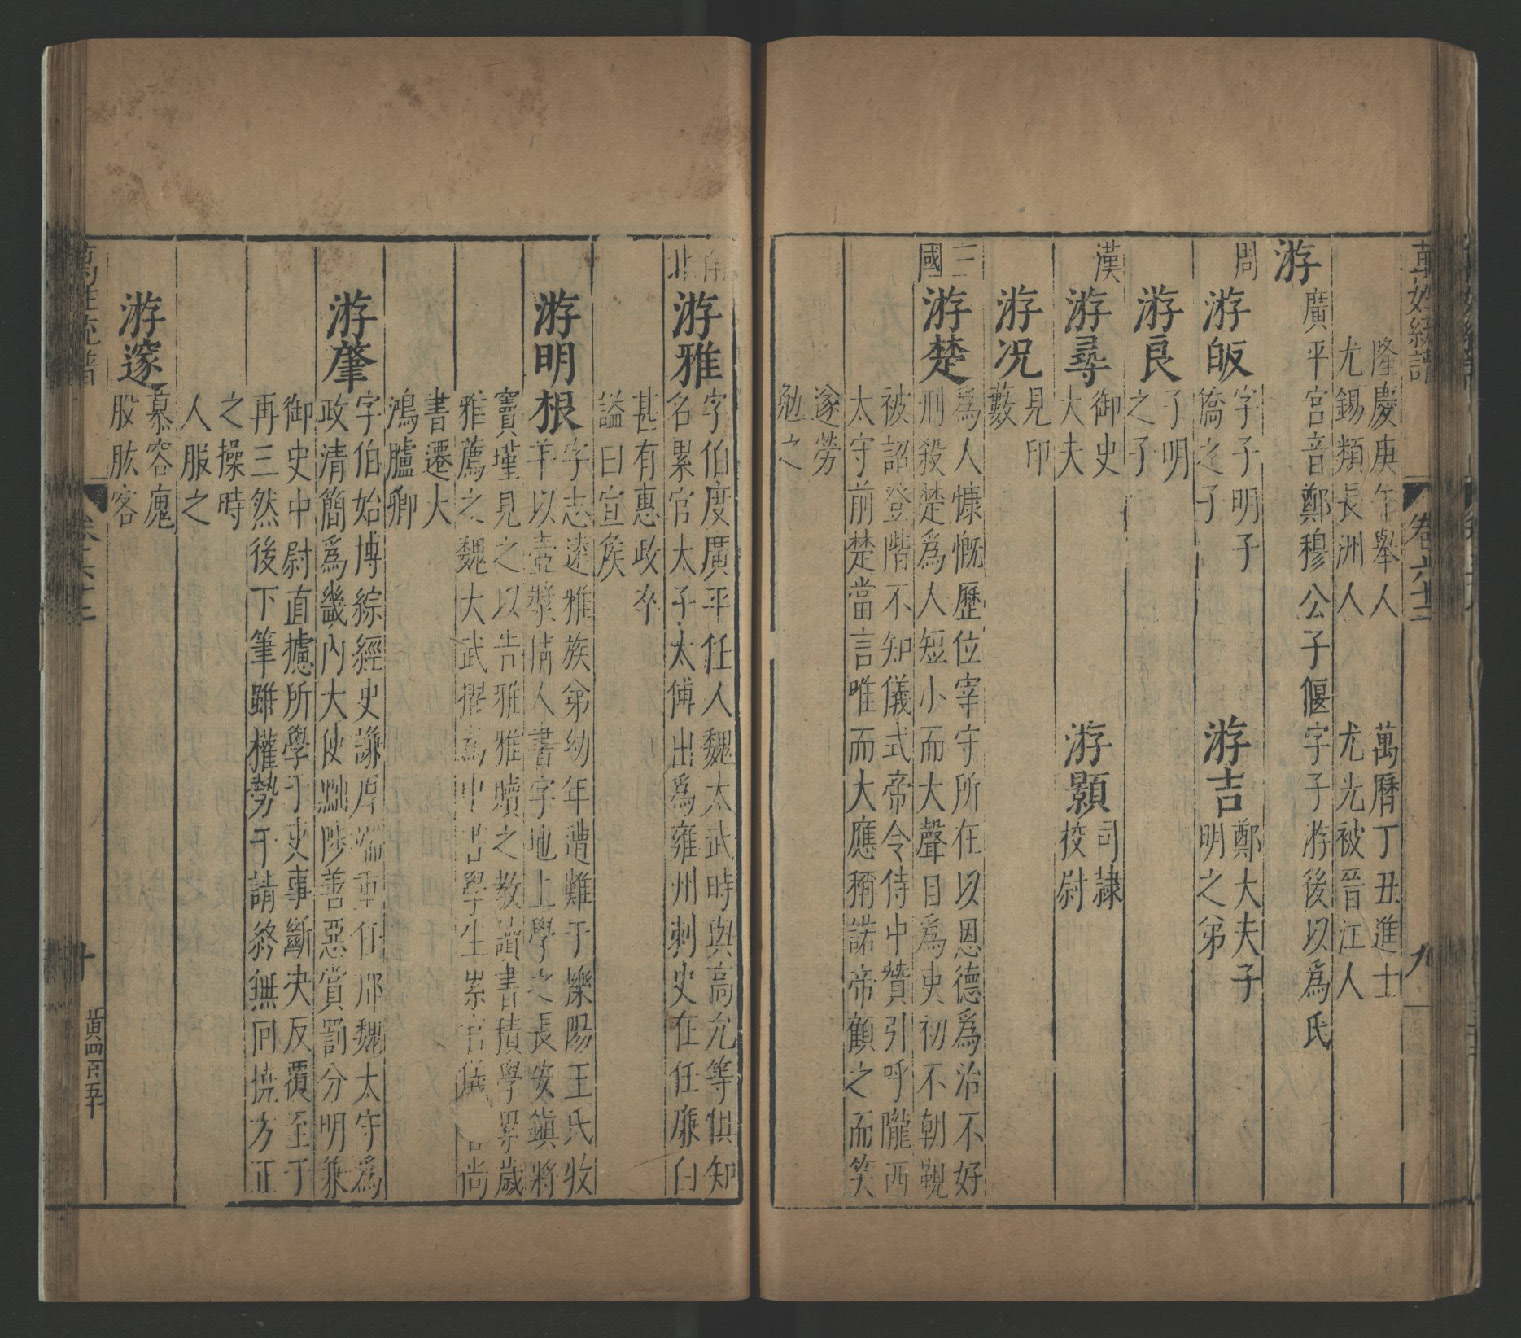 萬姓統譜
卷六十二
九
隆慶庚午舉人
尤錫類長洲人
萬曆丁丑進士
尤光被晉江人
游
廣平宮音鄭穆公子偃字子游後以爲氏
周
游皈
字子明子
僑之子
游吉
鄭大夫子
明之弟
游良
子明
之子
漢
游尋
御史
大夫
游顥
司隷
校尉
游况
見印
數
三國
游楚
爲人慷慨歷位宰守所在以恩德爲治不好
刑殺楚爲人短小而大聲自爲吏初不朝覲
被詔登階不知儀式帝令侍中贊引呼隴西
太守前楚當言唯而大應稱諾帝顧之而笑
遂勞
勉之
南北
游雅
字伯度廣平任人魏太武時與高允等俱知
名累官太子太傅出爲雍州刺史在任廉白
甚有惠政卒
謚曰宣侯
游明根
字志遠雅族弟幼年遭難于櫟陽王氏牧
羊以壺漿倩人書字地上學之長安鎮將
竇瑾見之以告雅雅贖之教讀書積學累歲
雅薦之魏大武擢爲中書學生累官儀 尚
書遷大
鴻臚卿
游肇
字伯始博綜經史謙厚端重仕郡魏太守爲
政清簡爲畿内大使黜陟善惡賞罰分明兼
御史中尉直據所學于吏事斷决反覆至于
再三然後下筆雖權勢干請終無回撓方正
之操時
人服之
游邃
慕容廆
股肱客
萬姓統譜
十
黄四百五十